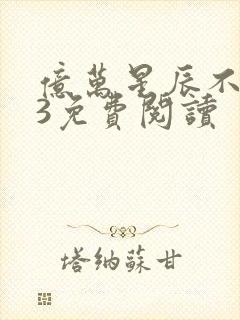 億萬星辰不
3免費閱讀
塔納蘇甘